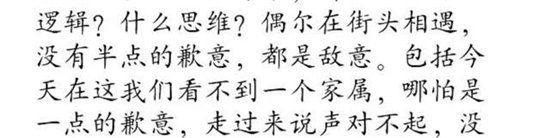 逻辑？什么思维？偶尔在街头相遇，
没有半点的歉意，都是敌意。包括今
天在这我们看不到一个家属，哪怕是
一点的歉意，走过来说声对不起，没